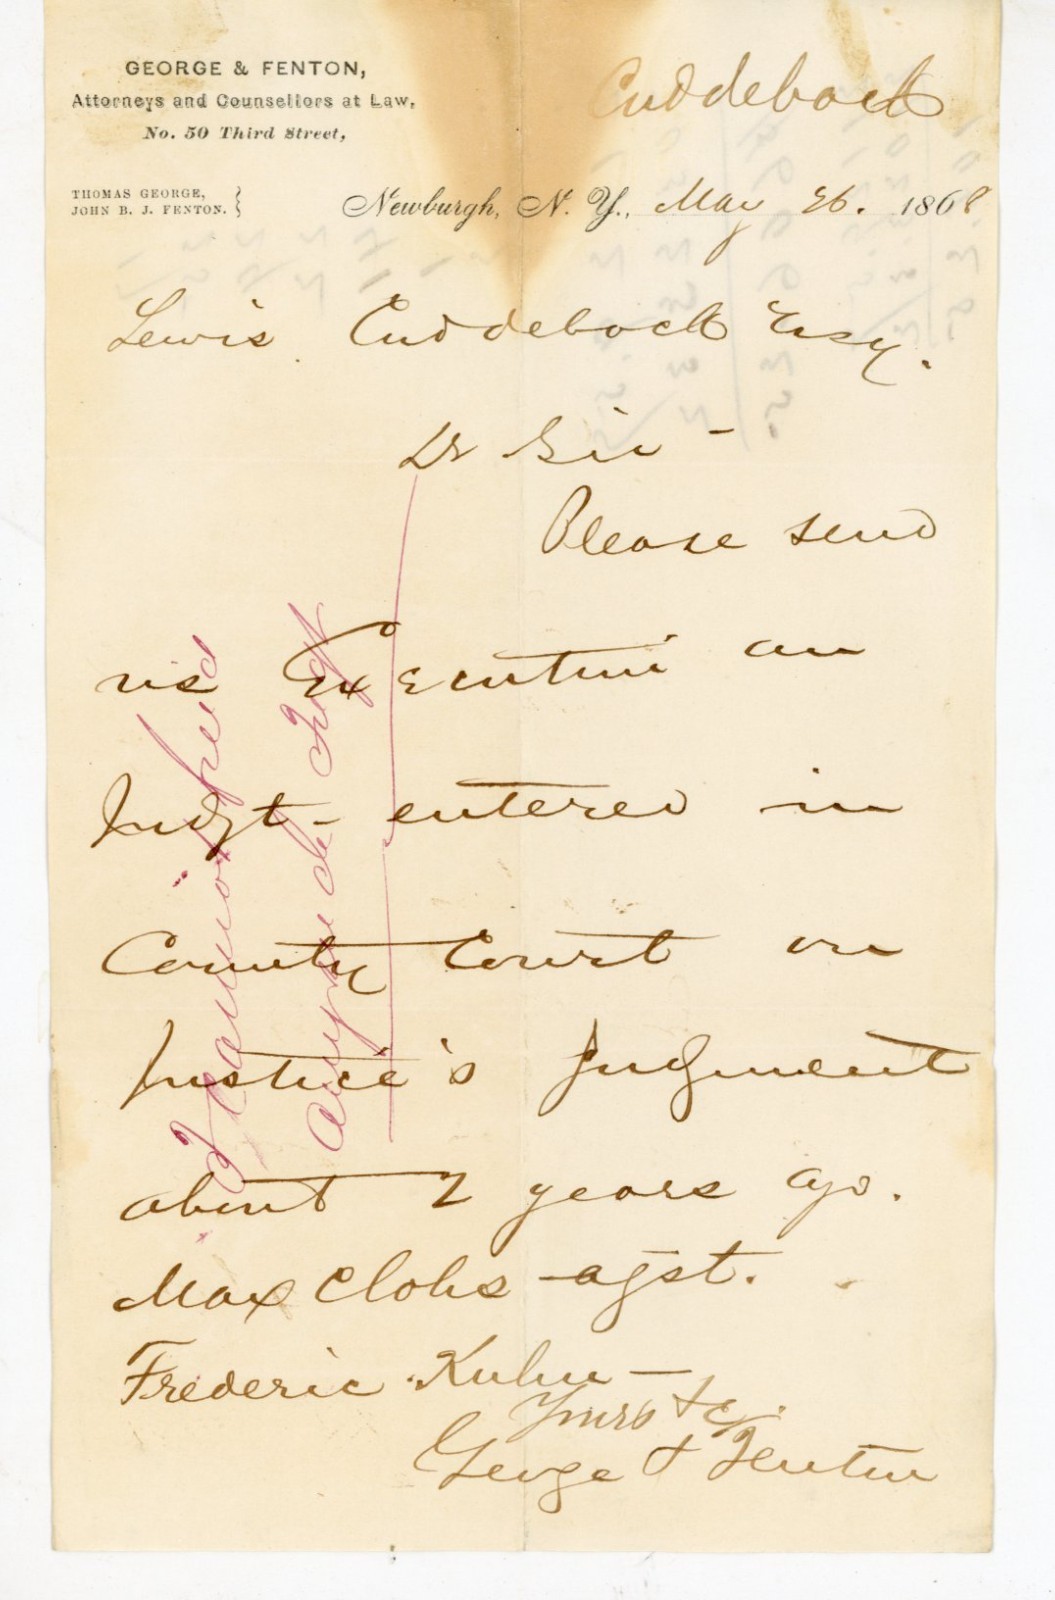 GEORGE & FENTON,
Attorneys and Counsellors at Law,
No. 50 Third Street,
THOMAS GEORGE,
JOHN B. J. FENTON.
Cuddeback
Newburgh, N. Y., May 26. 1868
Lewis Cuddeback Esq.
Dr Sir -
Please send
us Execution on
Judgt - entered in
County Court on
Justice's Judgment
about 2 years ago.
Max Clohs - agst.
Frederic Kuhn -
Yours &c.
George & Fenton
I cannot find
any judgt